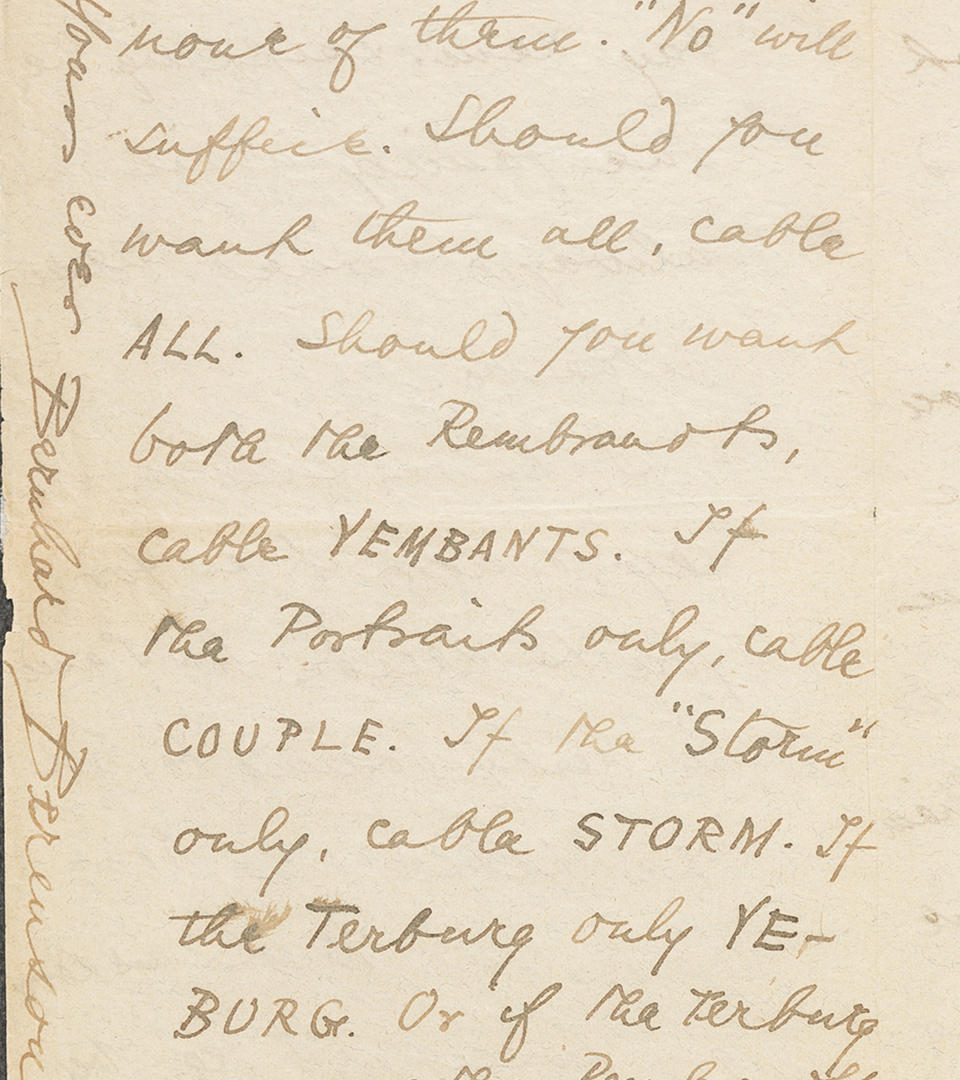 none of them. "No" will
suffice. Should you
want them all, cable
ALL. Should you want
both the Rembrandts,
cable YEMBANTS. If
the Portraits only, cable
COUPLE. If the "Storm"
only, cable STORM. If
the Terburg only YE-
BURG. Or if the Terburg
Yours ever
Bernhard Berenson